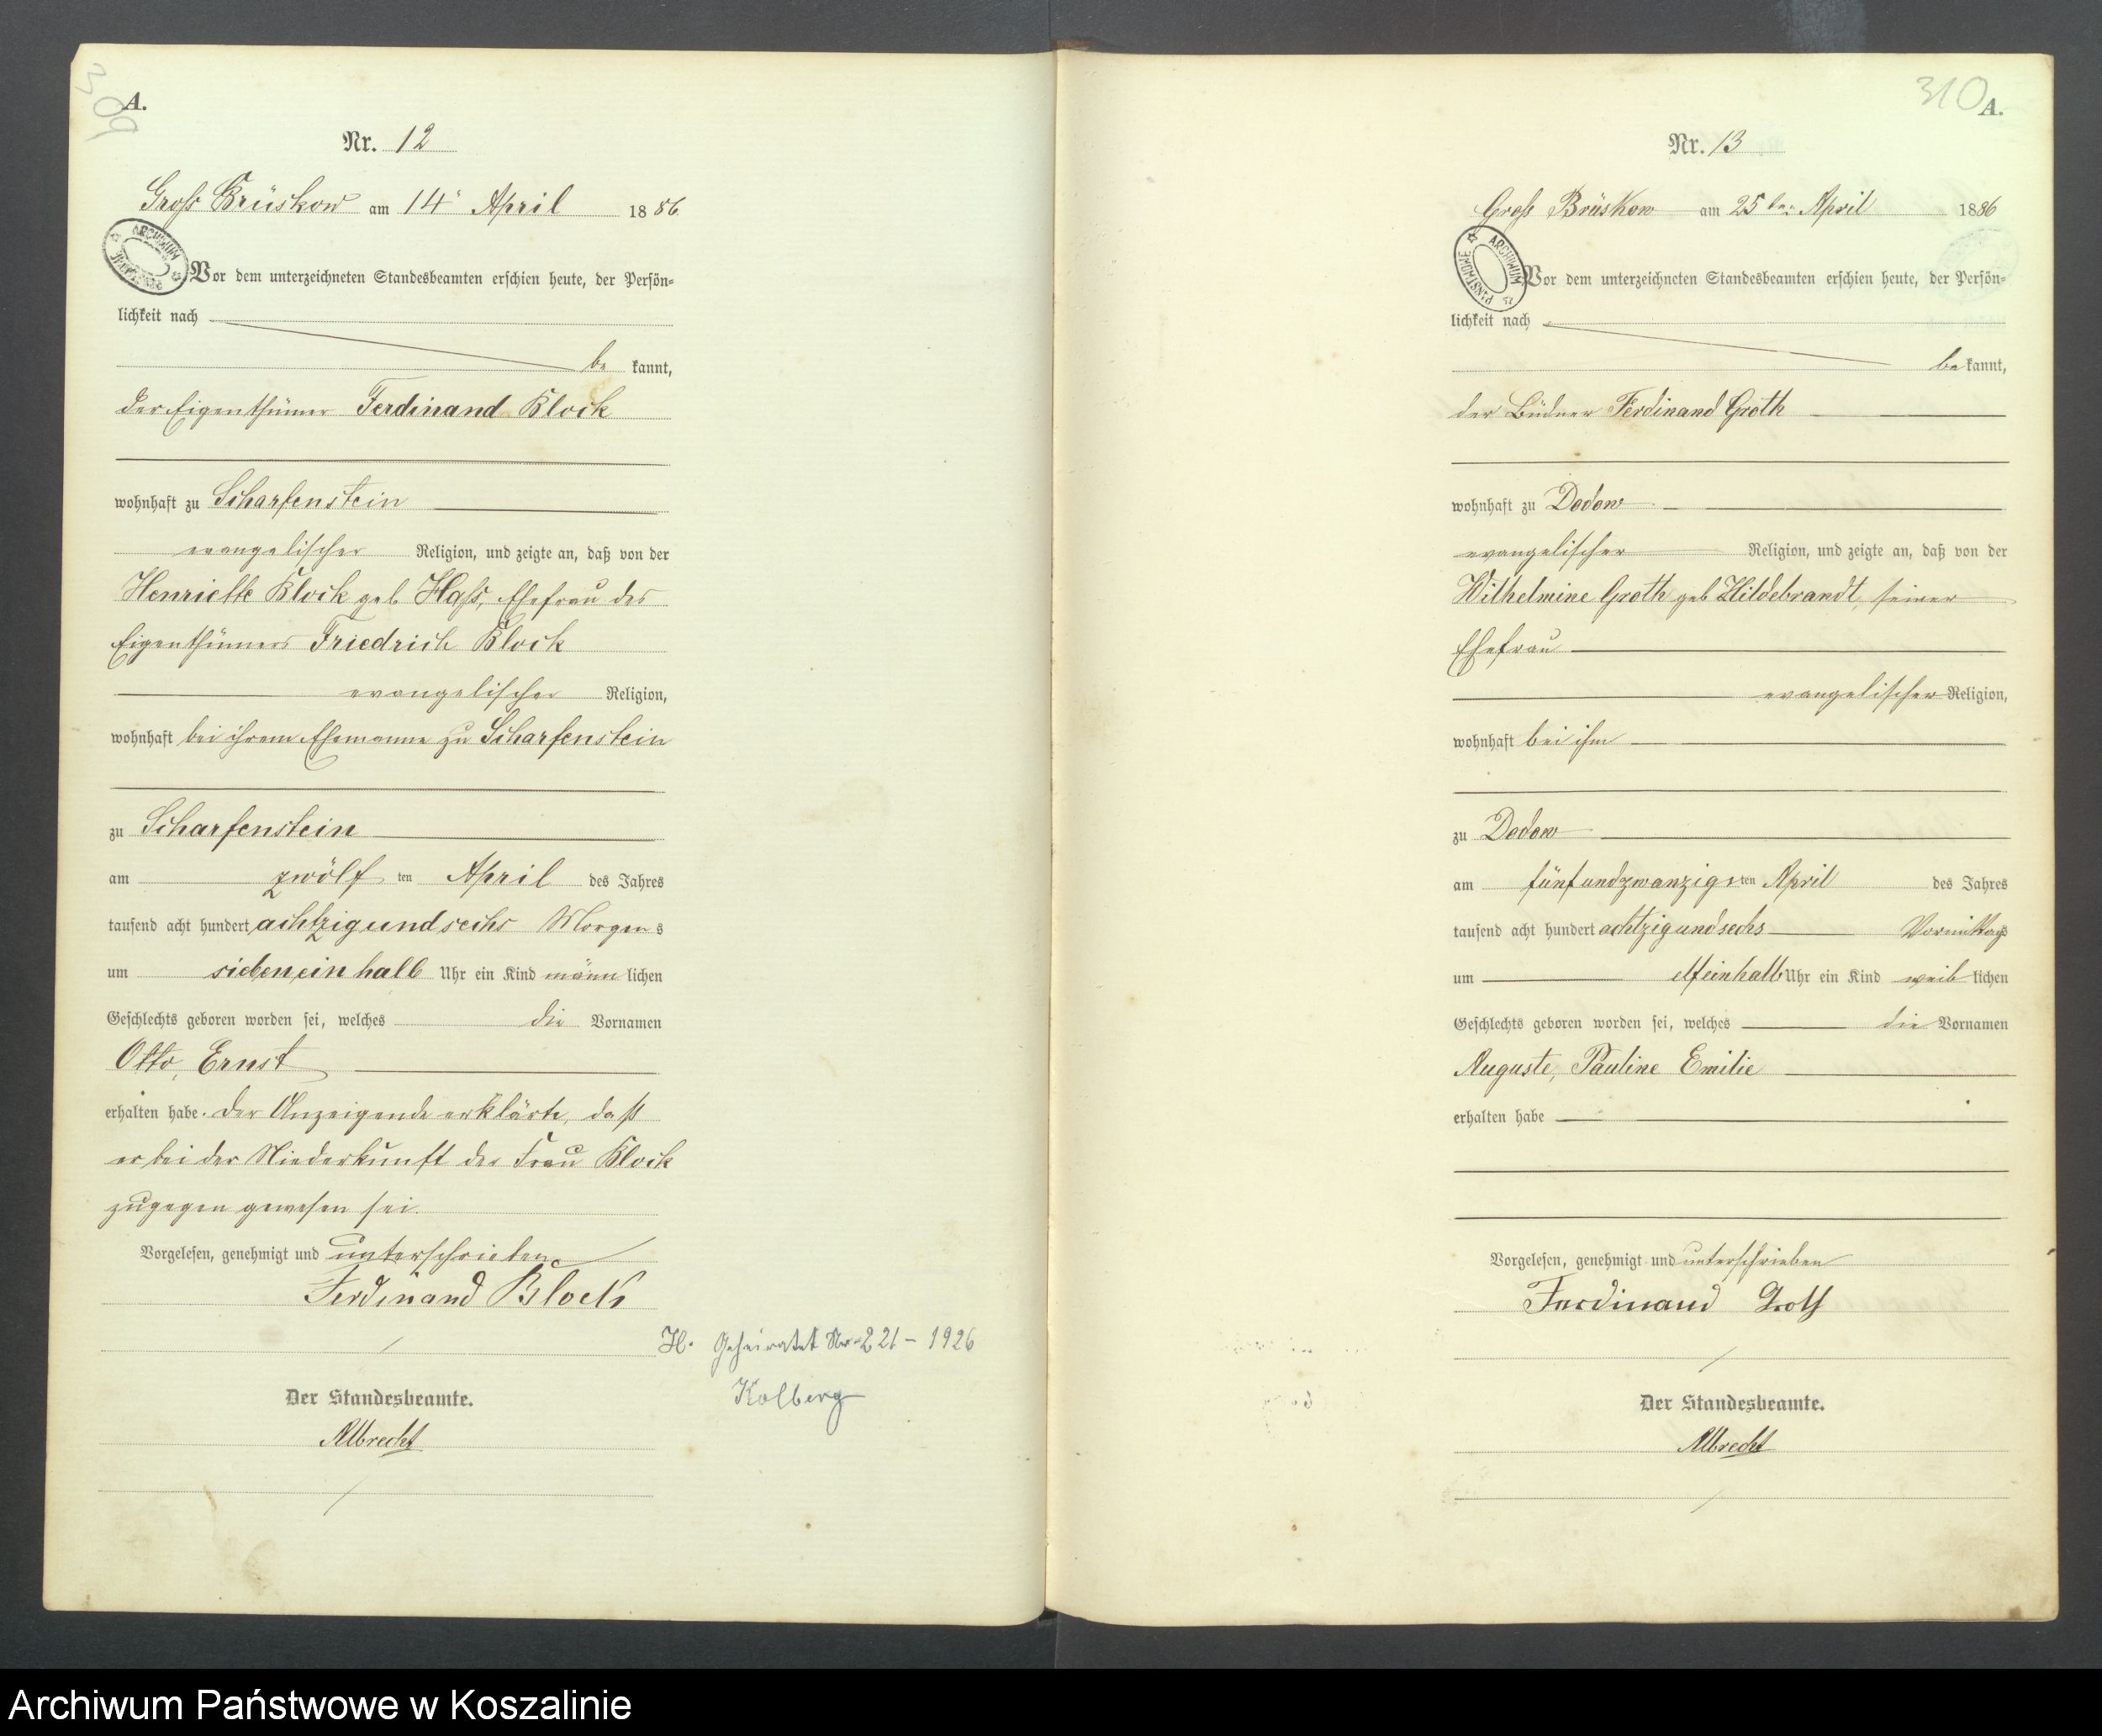 309
A.
Nr. 12
Gross Brüskow am 14' April 1886.
ARCHIWUM
Vor dem unterzeichneten Standesbeamten erschien heute, der Persön-
lichkeit nach
be kannt,
der Eigenthümer Ferdinand Block
wohnhaft zu Scharfenstein
evangelischer Religion, und zeigte an, daß von der
Henriette Block geb Hass, Ehefrau des
Eigenthümers Friedrich Block
evangelischer Religion,
wohnhaft bei ihrem Ehemanne zu Scharfenstein
zu Scharfenstein
am zwölf ten April des Jahres
tausend acht hundert achtzigundsechs Morgens
um siebeneinhalb Uhr ein Kind männlichen
Geschlechts geboren worden sei, welches die Vornamen
Otto, Ernst
erhalten habe. Der Anzeigende erklärte, daß
er bei der Niederkunft der Frau Block
zugegen gewesen sei.
Vorgelesen, genehmigt und unterschrieben
Ferdinand Block
H. Geheiratet Nr. 221 - 1926
Kolberg
Der Standesbeamte.
Albrecht
310
A.
Nr. 13
Gross Brüskow am 25ten April 1886
ARCHIWUM PAŃSTWOWE
Vor dem unterzeichneten Standesbeamten erschien heute, der Persön-
lichkeit nach
bekannt,
der Büdner Ferdinand Groth
wohnhaft zu Dodow
evangelischer Religion, und zeigte an, daß von der
Wilhelmine Groth geb Hildebrandt, seiner
Ehefrau
evangelischer Religion,
wohnhaft bei ihm
zu Dodow
am fünfundzwanzigsten April des Jahres
tausend acht hundert achtzigundsechs Vormittags
um elfeinhalb Uhr ein Kind weiblichen
Geschlechts geboren worden sei, welches die Vornamen
Auguste, Pauline Emilie
erhalten habe
Vorgelesen, genehmigt und unterschrieben
Ferdinand Groth
Der Standesbeamte.
Albrecht
Archiwum Państwowe w Koszalinie